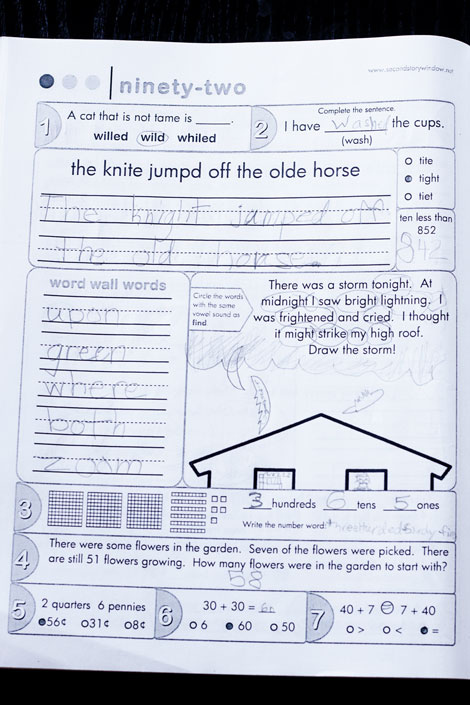 www.secondstorywindow.net
ninety-two
1 A cat that is not tame is ____.
willed wild whiled
2 Complete the sentence.
I have washd the cups.
(wash)
the knite jumpd off the olde horse
The knight jumped off
the old horse.
tite
tight
tiet
ten less than
852
842
word wall words
upon
green
where
both
zoom
Circle the words
with the same
vowel sound as
find.
There was a storm tonight. At
midnight I saw bright lightning. I
was frightened and cried. I thought
it might strike my high roof.
Draw the storm!
3 3 hundreds 6 tens 5 ones
Write the number word:
4 There were some flowers in the garden. Seven of the flowers were picked. There
are still 51 flowers growing. How many flowers were in the garden to start with?
58
5 2 quarters 6 pennies
56¢ 31¢ 8¢
6 30 + 30 = 60
6 60 50
7 40 + 7 = 7 + 40
> < =